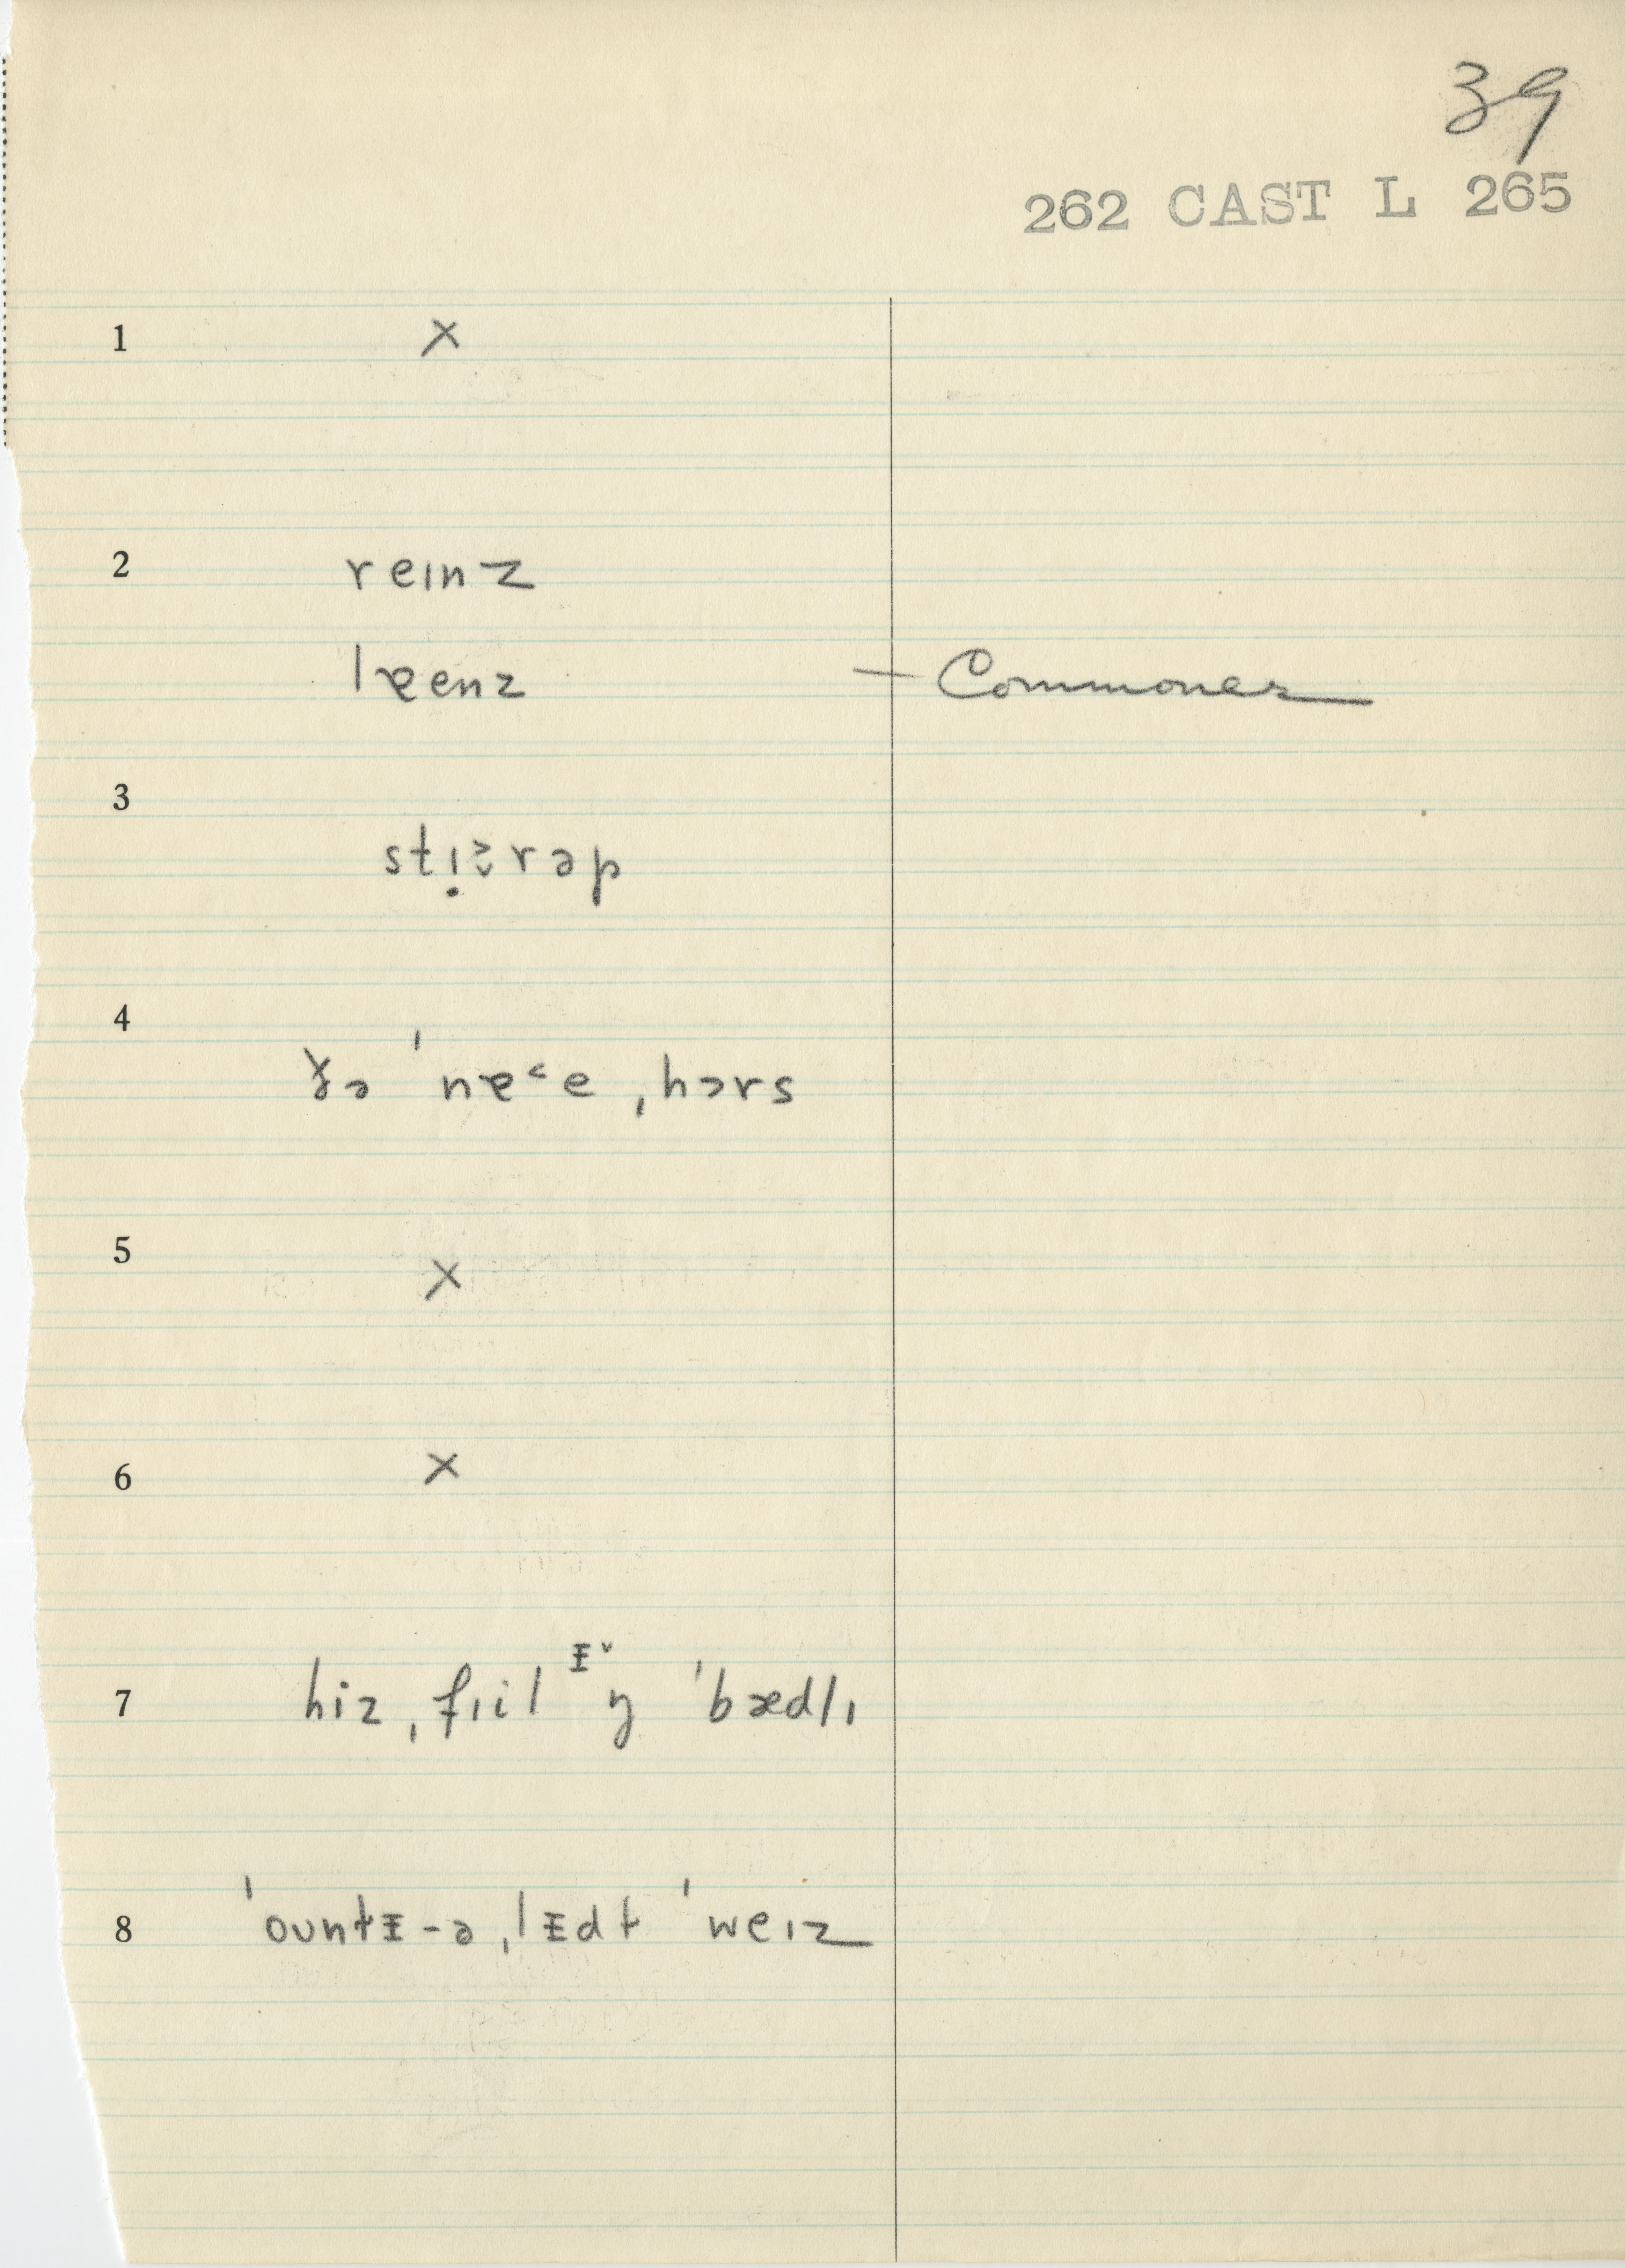 39
262 CAST L 265
1 ×
2 reɪnz
lɐenz — Commoner
3 rəp
4 ðə ˈnɐ˂e ˌhɔrs
5 ×
6 ×
7 hiz ˌfɪil ᵻ˅ŋ ˈbædlɪ
8 ˈountᵻ-ə ˌlᵻdt ˈweɪz